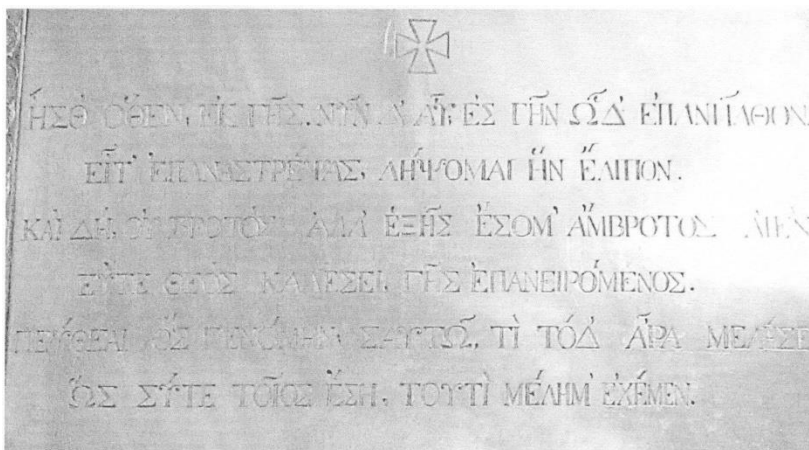 ἯΣΘ᾽ ὍΘΕΝ, ἘΚ ΓΗ͂Σ. ΝΥ͂Ν Δ᾽ ἘΣ ΓΗ͂Ν ὯΔ᾽ ἘΠΑΝΗ͂ΛΘΟΝ.
ΕἾΤ᾽ ἘΠΑΝΑΣΤΡΈΨΑΣ, ΛΉΨΟΜΑΙ ἫΝ ἜΛΙΠΟΝ.
ΚΑῚ ΔῊ, ΟΥ̓ ΒΡΟΤῸΣ ἈΛΛ᾽ ἙΞΗ͂Σ ἜΣΟΜ᾽ ἌΜΒΡΟΤΟΣ ΑἸΕΝ
ΕΥ̓͂ΤΕ ΘΕῸΣ ΚΑΛΈΣΕΙ, ΓΗ͂Σ ἘΠΑΝΕΙΡΌΜΕΝΟΣ.
ΠΕΎΘΕΑΙ ὋΣ ΓΕΝΌΜΗΝ ΣΑΥΤΩ͂, ΤῚ ΤΌΔ᾽ ἌΡΑ
ὩΣ ΣΎΤΕ ΤΟΙ͂ΟΣ ἜΣΗ, ΤΟΥΤῚ ΜΈΛΗΜ᾽ ἘΧΈΜΕΝ.